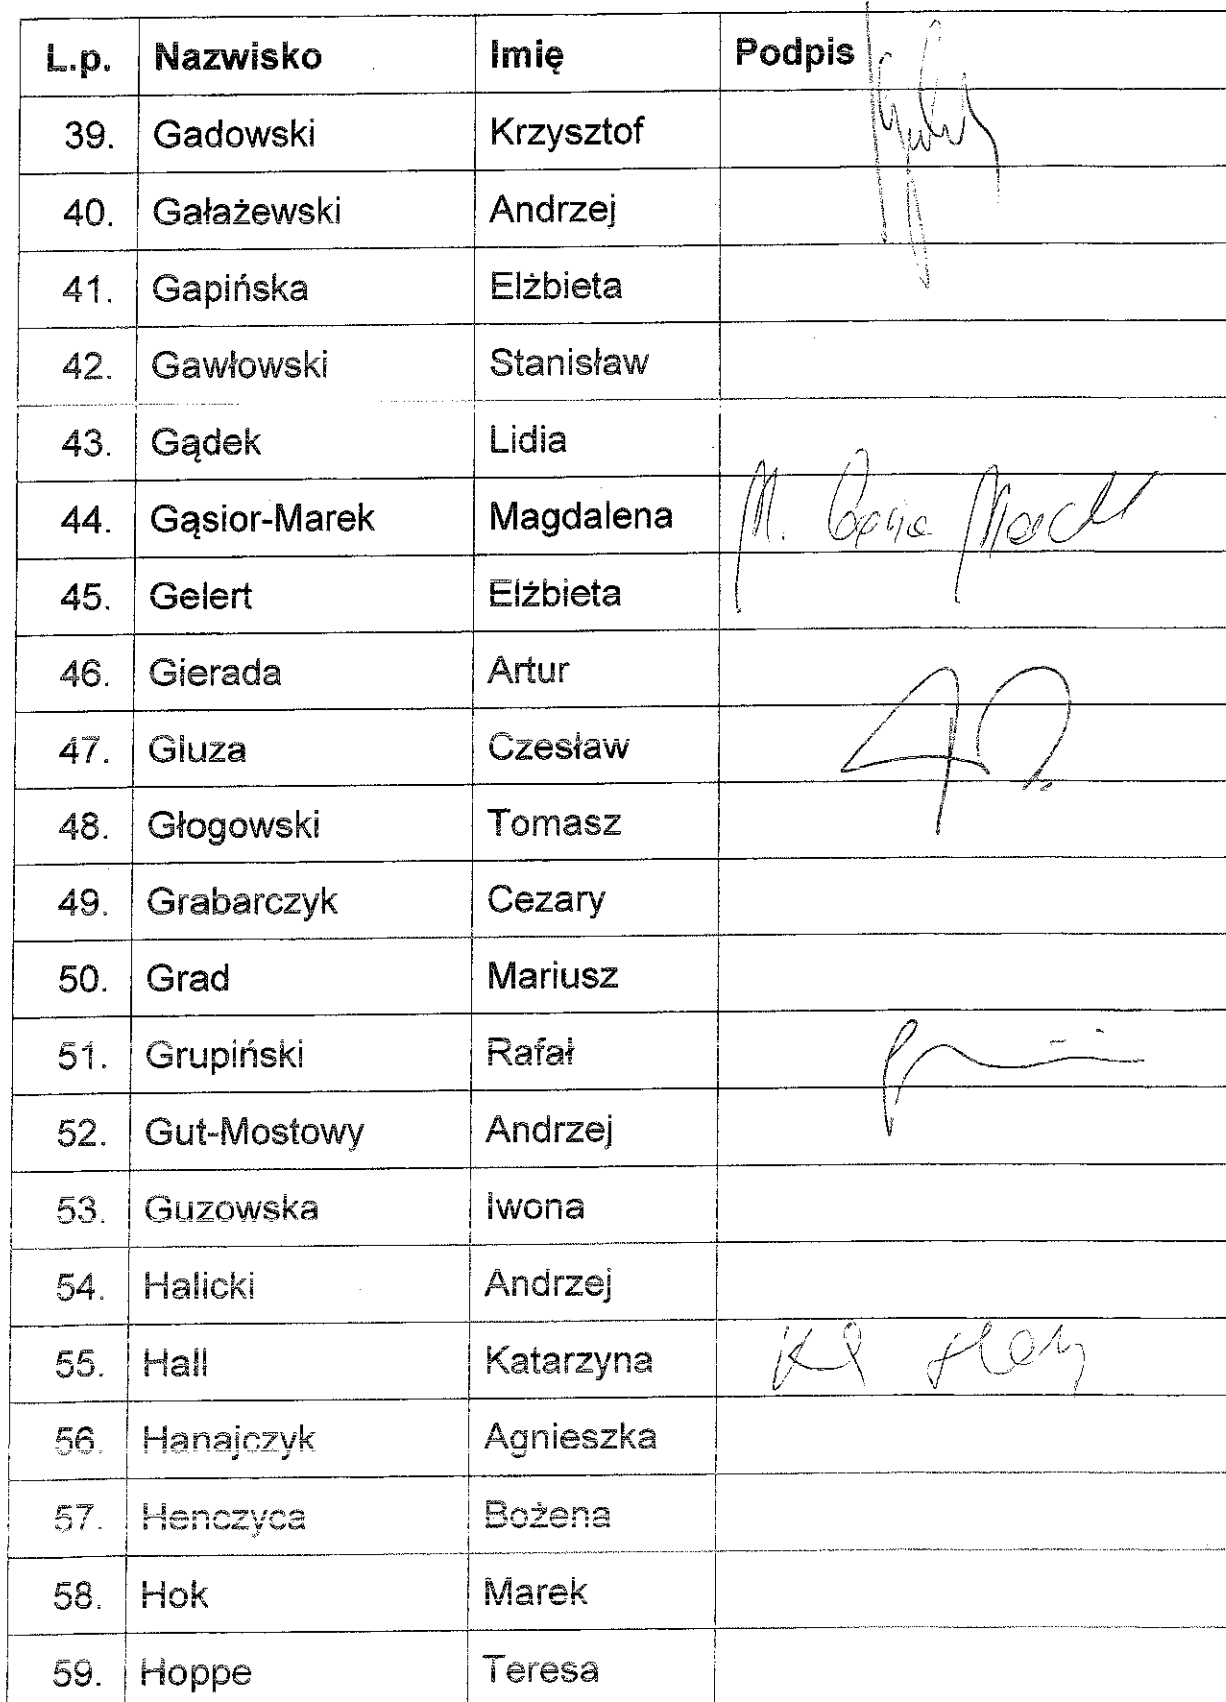 L.p. Nazwisko Imię Podpis
39. Gadowski Krzysztof
40. Gałażewski Andrzej
41. Gapińska Elżbieta
42. Gawłowski Stanisław
43. Gądek Lidia
44. Gąsior-Marek Magdalena M.
45. Gelert Elżbieta
46. Gierada Artur
47. Gluza Czesław
48. Głogowski Tomasz
49. Grabarczyk Cezary
50. Grad Mariusz
51. Grupiński Rafał
52. Gut-Mostowy Andrzej
53. Guzowska Iwona
54. Halicki Andrzej
55. Hall Katarzyna
56. Hanajczyk Agnieszka
57. Henczyca Bożena
58. Hok Marek
59. Hoppe Teresa